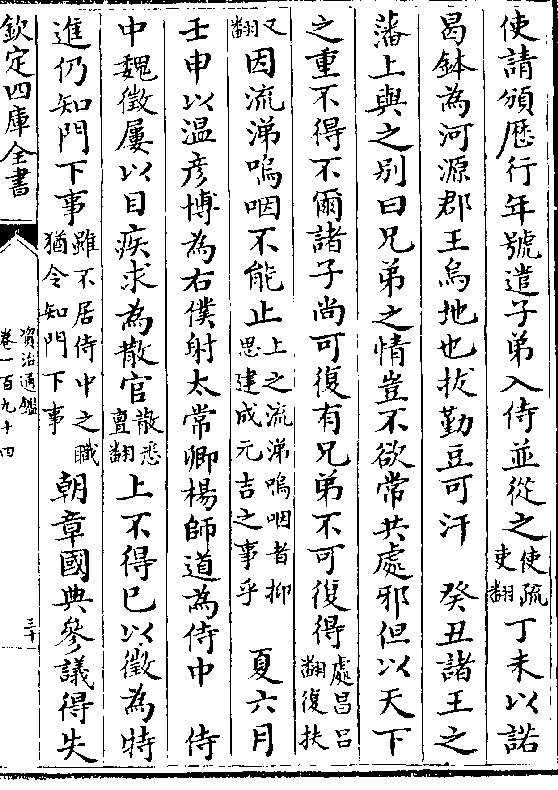 使請頒厯行年號遣子弟入侍並從之使疏吏翻丁未以諾
曷鉢為河源郡王烏地也拔勤豆可汗　癸丑諸王之
藩上與之別曰兄弟之情豈不欲常共處邪但以天下
之重不得不爾諸子尚可復有兄弟不可復得處昌呂翻復扶
又翻因流涕嗚咽不能止上之流涕嗚咽者抑思建成元吉之事乎　夏六月
壬申以溫彥博為右僕射太常卿楊師道為侍中　侍
中魏徵屢以目疾求為散官散悉亶翻上不得已以徵為特
進仍知門下事雖不居侍中之職猶令知門下事朝章國典參議得失
欽定四庫全書
資治通鑑
卷一百九十四
三十